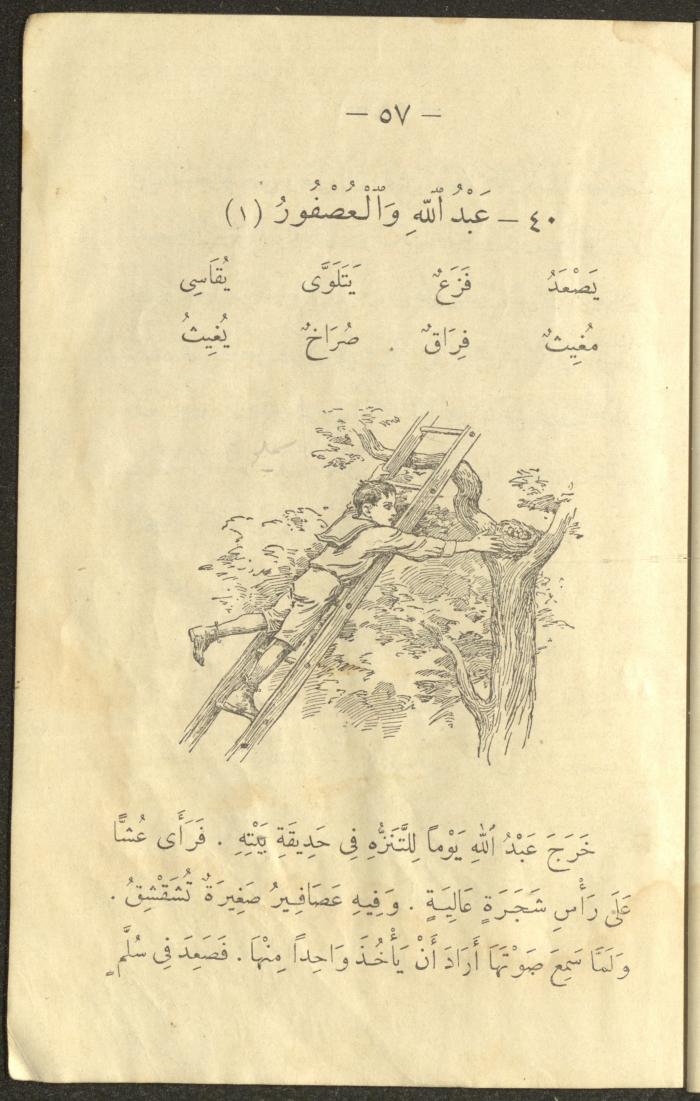 — ٥٧ —
٤٠ — عَبْدُ ٱللّٰهِ وَٱلْعُصْفُورُ (١)
يَصْعَدُ فَزَعٌ يَتَلَوَّى يُقَاسِى
مُغِيثٌ فِرَاقٌ صُرَاخٌ يُغِيثُ
خَرَجَ عَبْدُ ٱللّٰهِ يَوْماً لِلتَّنَزُّهِ فِى حَدِيقَةِ بَيْتِهِ . فَرَأَى عُشًّا
عَلَى رَأْسِ شَجَرَةٍ عَالِيَةٍ . وَفِيهِ عَصَافِيرُ صَغِيرَةٌ تُشَقْشِقُ .
وَلَمَّا سَمِعَ صَوْتَهَا أَرَادَ أَنْ يَأْخُذَ وَاحِداً مِنْهَا . فَصَعِدَ فِى سُلَّمٍ